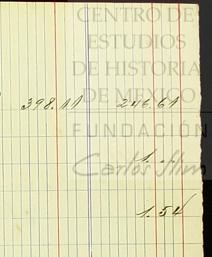 CENTRO DE
ESTUDIOS
DE HISTORIA
DE MEXICO
398.11 246.61
FUNDACIÓN
Carlos Slim
1. "
1.54